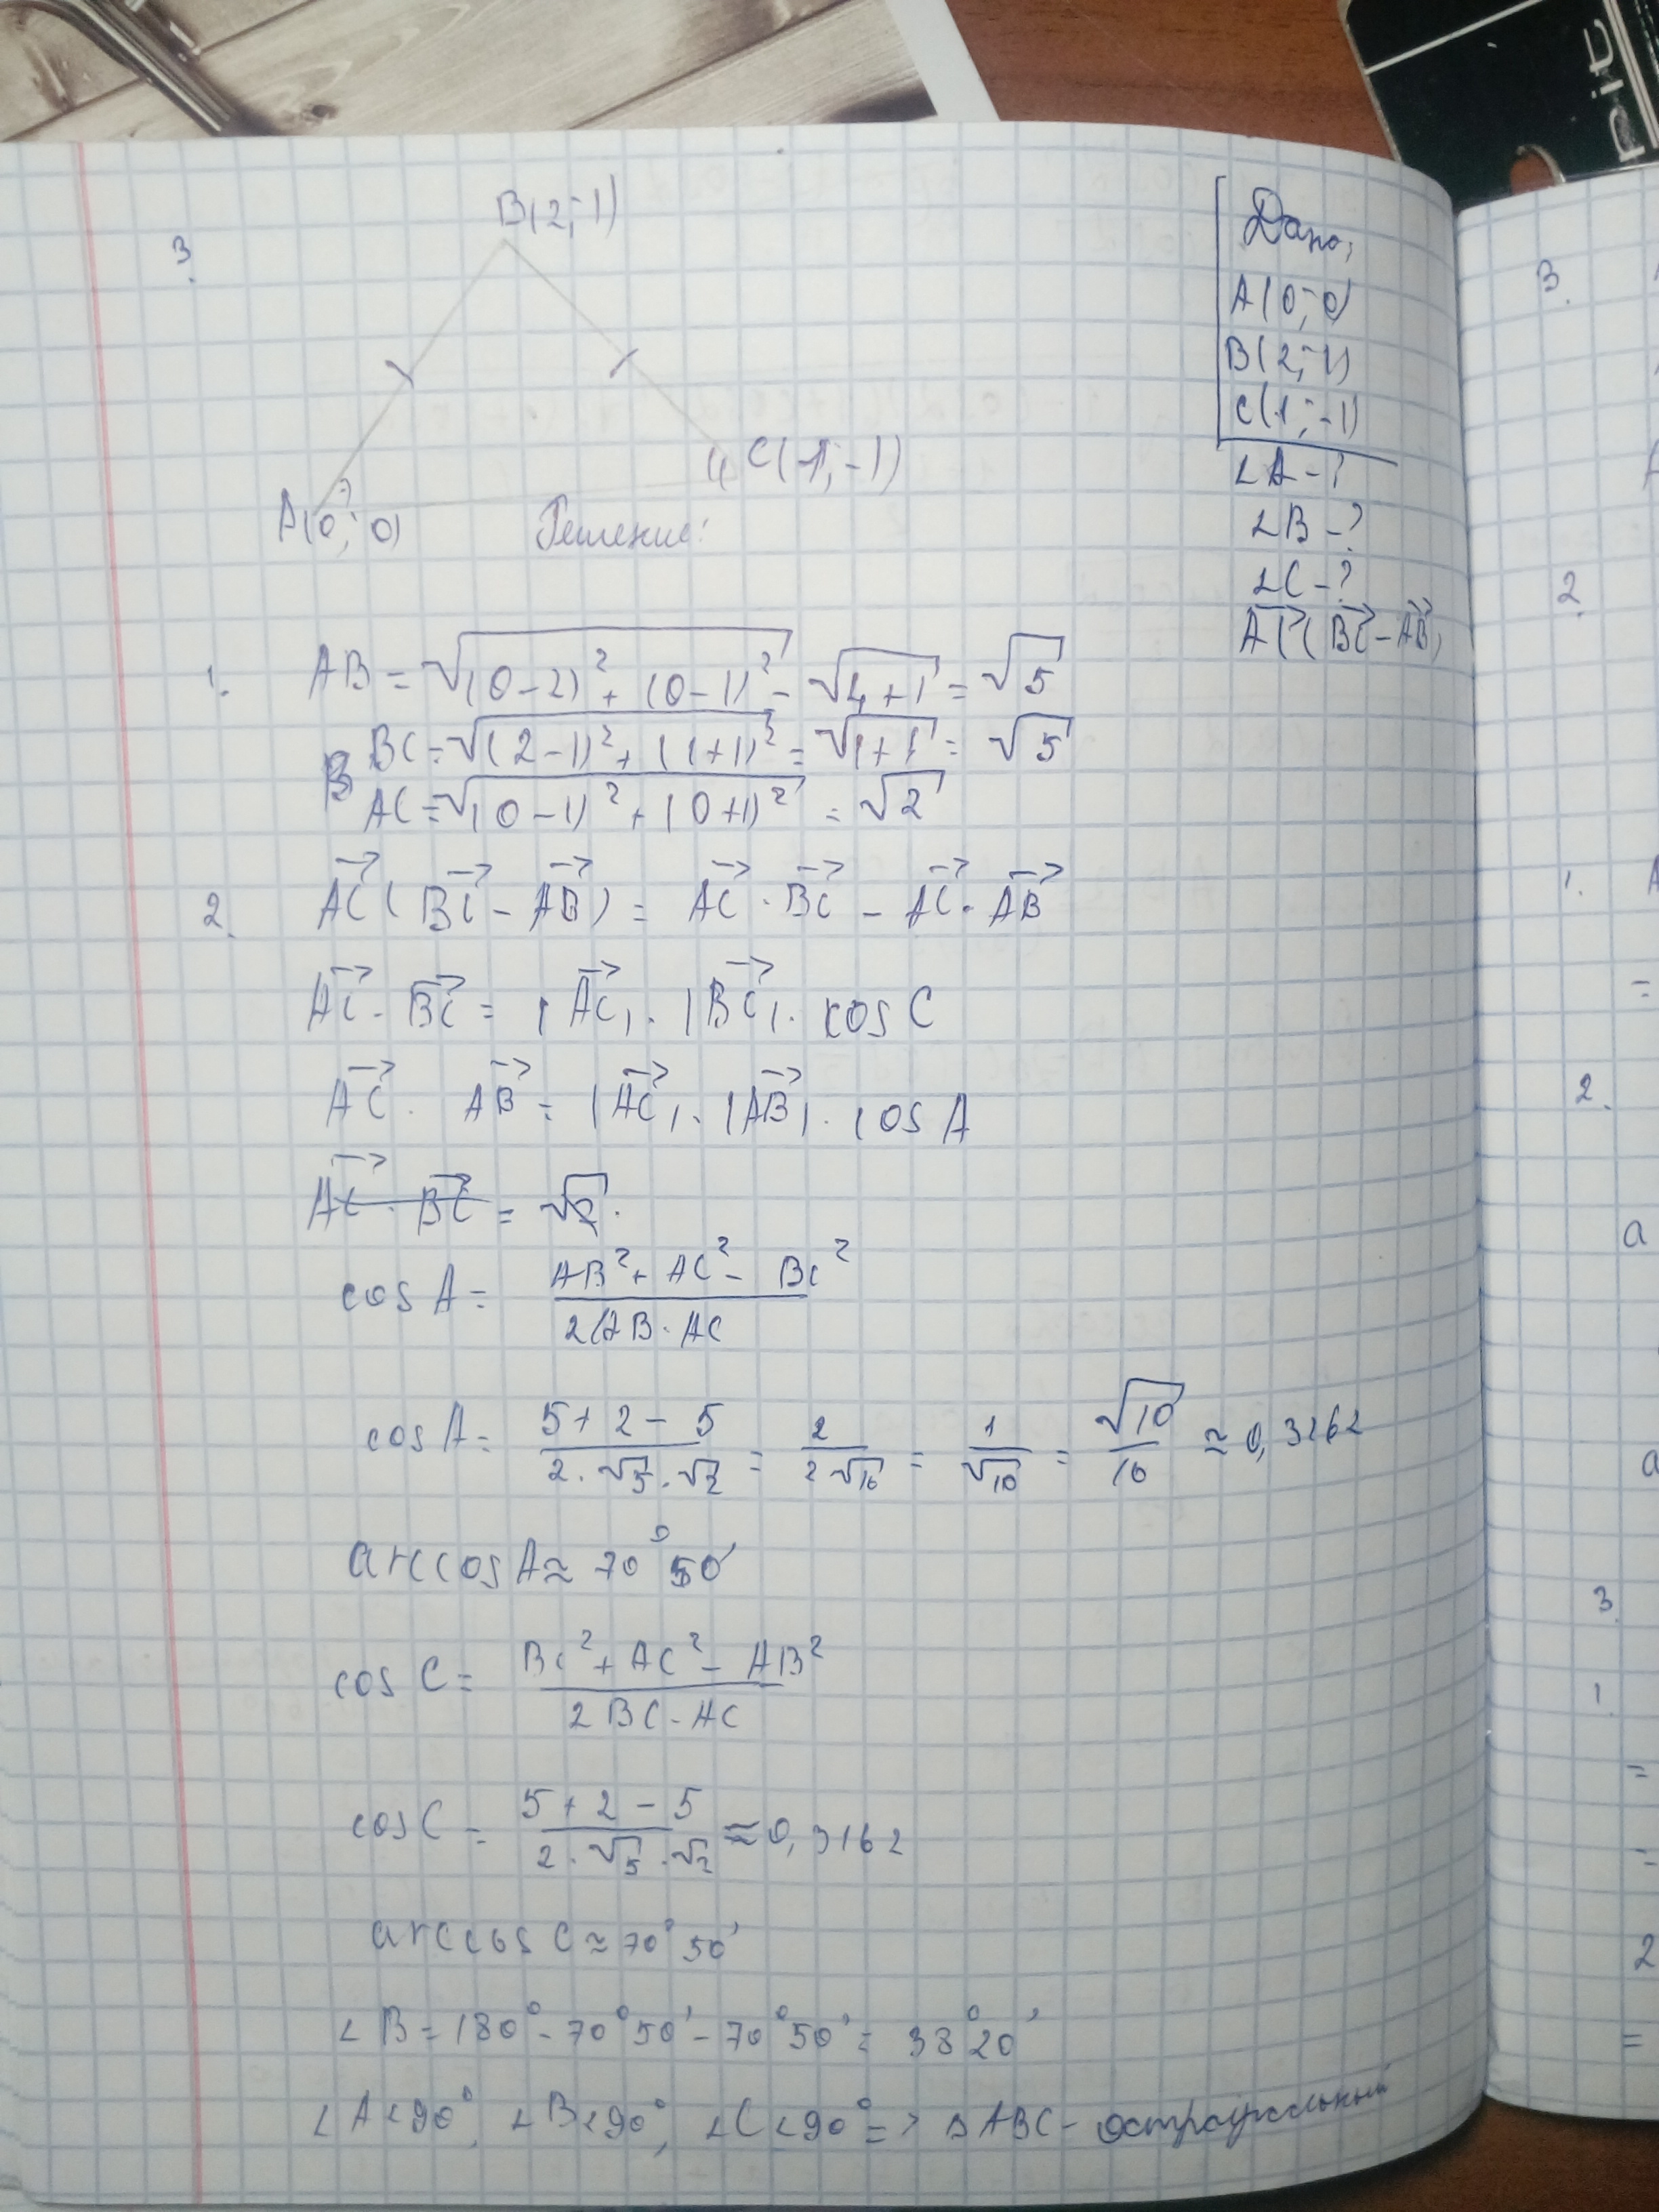 3.
B(2; 1)
C(1; -1)
A(0; 0)
Дано:
A(0; 0)
B(2; 1)
C(1; -1)
∠A - ?
∠B - ?
∠C - ?
AC(BC - AB)
Решение:
1. AB = √((0-2)² + (0-1)²) = √(4+1) = √5
BC = √((2-1)² + (1+1)²) = √(1+1) = √5
AC = √((0-1)² + (0+1)²) = √2
2. AC(BC - AB) = AC · BC - AC · AB
AC · BC = |AC| · |BC| · cos C
AC · AB = |AC| · |AB| · cos A
AC · BC = √2 ·
cos A = (AB² + AC² - BC²) / (2(AB · AC)
cos A = (5 + 2 - 5) / (2 · √5 · √2) = 2 / (2√10) = 1 / √10 = √10 / 10 ≈ 0,3162
arccos A ≈ 70°50'
cos C = (BC² + AC² - AB²) / (2 BC · AC)
cos C = (5 + 2 - 5) / (2 · √5 · √2) ≈ 0,3162
arccos C ≈ 70°50'
∠B = 180° - 70°50' - 70°50' = 38°20'
∠A < 90°, ∠B < 90°, ∠C < 90° => ΔABC - остроугольный
3.
2.
1.
=
2.
a
a
3.
1.
=
=
2
=